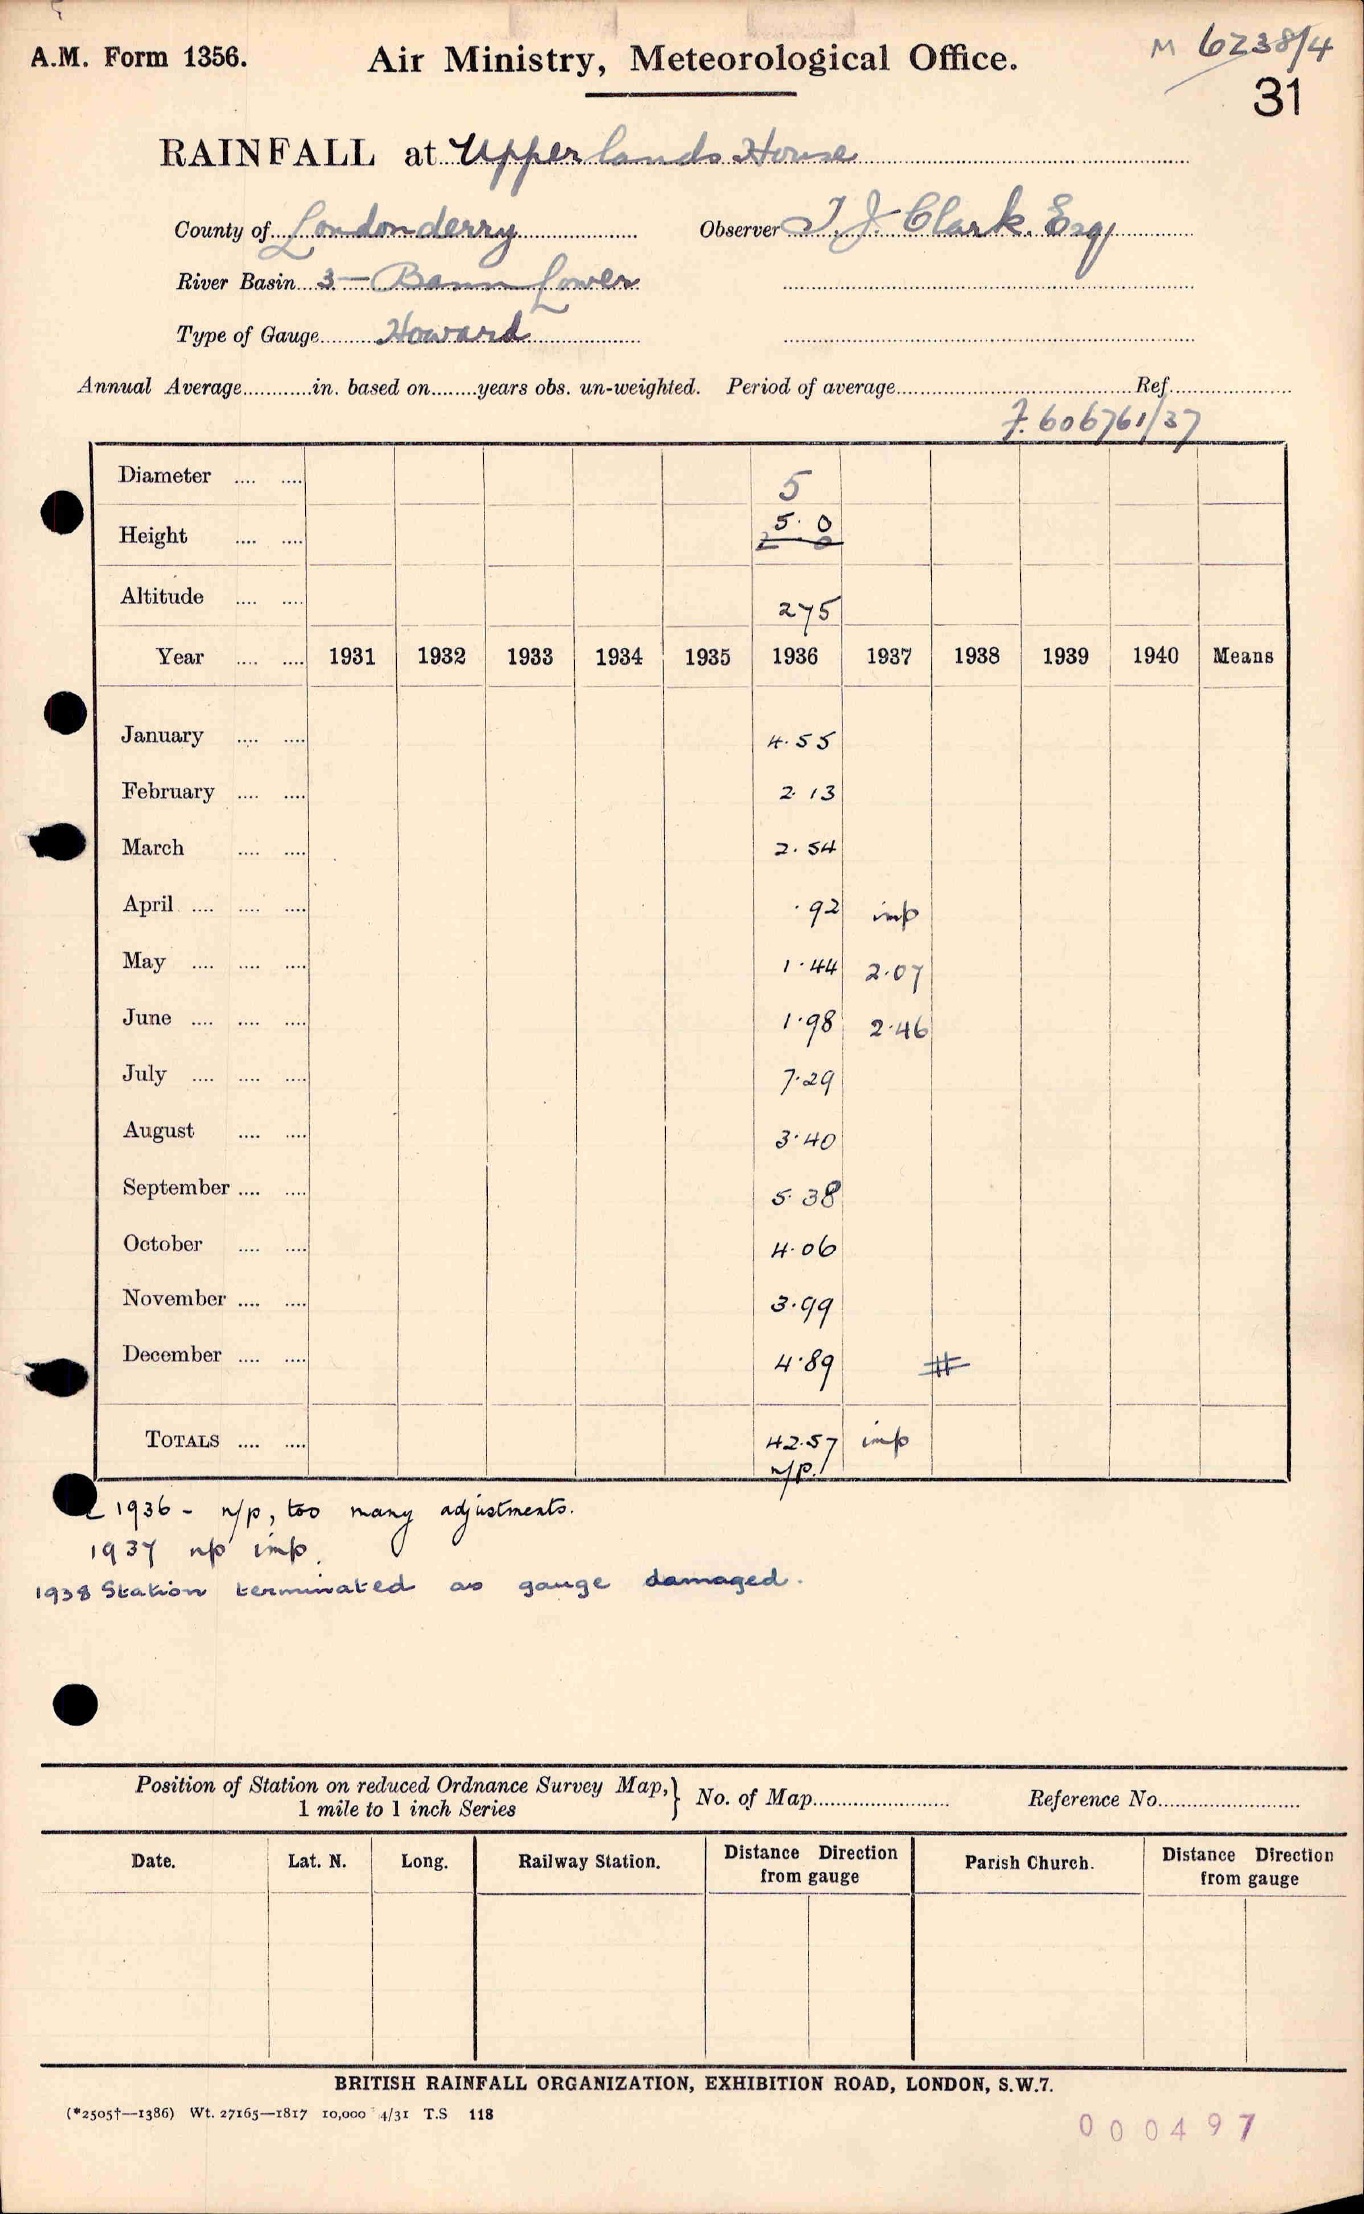 M 6238/4
A.M. Form 1356. Air Ministry, Meteorological Office.
31
RAINFALL at Upperlands House
County of Londonderry Observer T. J. Clark. Esq
River Basin 3 — Bann Lower
Type of Gauge Howard
Annual Average............in. based on........years obs. un-weighted. Period of average............Ref............
F. 606761/37
Diameter .... .... 5
Height .... .... 5. 0
Altitude .... .... 275
Year .... .... 1931 1932 1933 1934 1935 1936 1937 1938 1939 1940 Means
January .... .... 4.55
February .... .... 2.13
March .... .... 2.54
April .... .... .... .92 imp
May .... .... .... 1.44 2.07
June .... .... .... 1.98 2.46
July .... .... .... 7.29
August .... .... 3.40
September .... .... 5.38
October .... .... 4.06
November .... .... 3.99
December .... .... 4.89
TOTALS .... .... 42.57 imp
n/p.
1936 - n/p, too many adjustments.
1937 np imp.
1938 Station terminated as gauge damaged.
Position of Station on reduced Ordnance Survey Map,} No. of Map............ Reference No............
1 mile to 1 inch Series
Date. Lat. N. Long. Railway Station. Distance Direction from gauge Parish Church. Distance Direction from gauge
BRITISH RAINFALL ORGANIZATION, EXHIBITION ROAD, LONDON, S.W.7.
(*2505†—1386) Wt. 27165—1817 10,000 4/31 T.S 118
000497